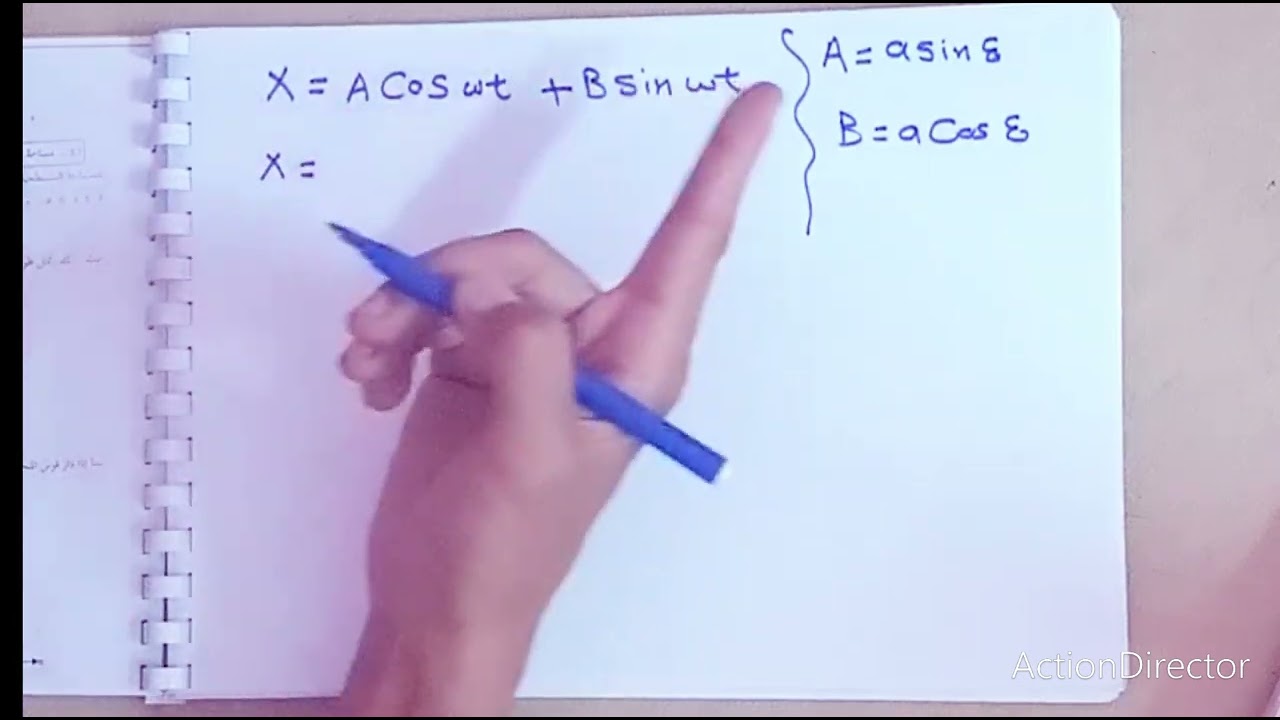 X = A Cos ωt + B sin ωt
X =
A = a sin ε
B = a Cos ε
ActionDirector